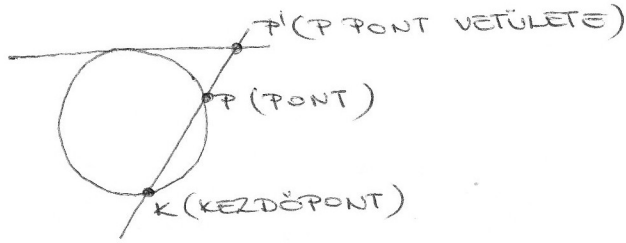 P' (P PONT VETÜLETE)
P (PONT)
K (KEZDŐPONT)